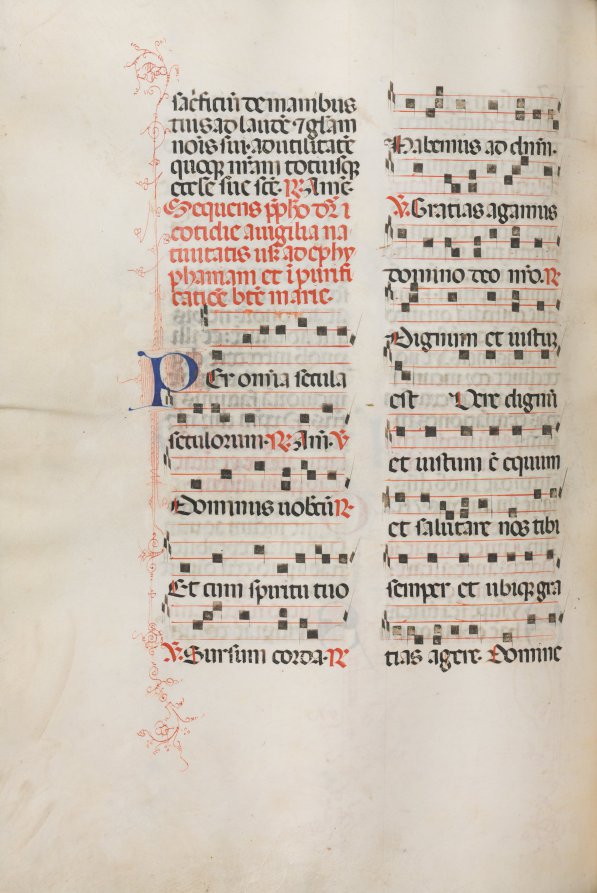 sacrificiū de manibus
tuis ad laudē ⁊ glam
nois sui · ad utilitatē
quoqȝ nr̄am totiusqȝ
eccłe sue scē. R̷. Amē.
Sequens p̄pho dr̄ i
cotidie a uigilia na
tiuitatis usqȝ ad ephy
phaniam et ī purifi
catiōe btē marie.
Per omīa secula
seculorum. R̷. Am̄. V̷
Dominus uobcū R̷.
Et cum spiritu tuo
V̷. Sursum corda. R̷
Habemus ad dn̄m.
V̷. Gratias agamus
domino deo nr̄o. R̷
Dignum et iustuȝ
est Vere dignū
et iustum ē equum
et salutare nos tibi
semper et ubiqȝ gra
tias agere. Domine